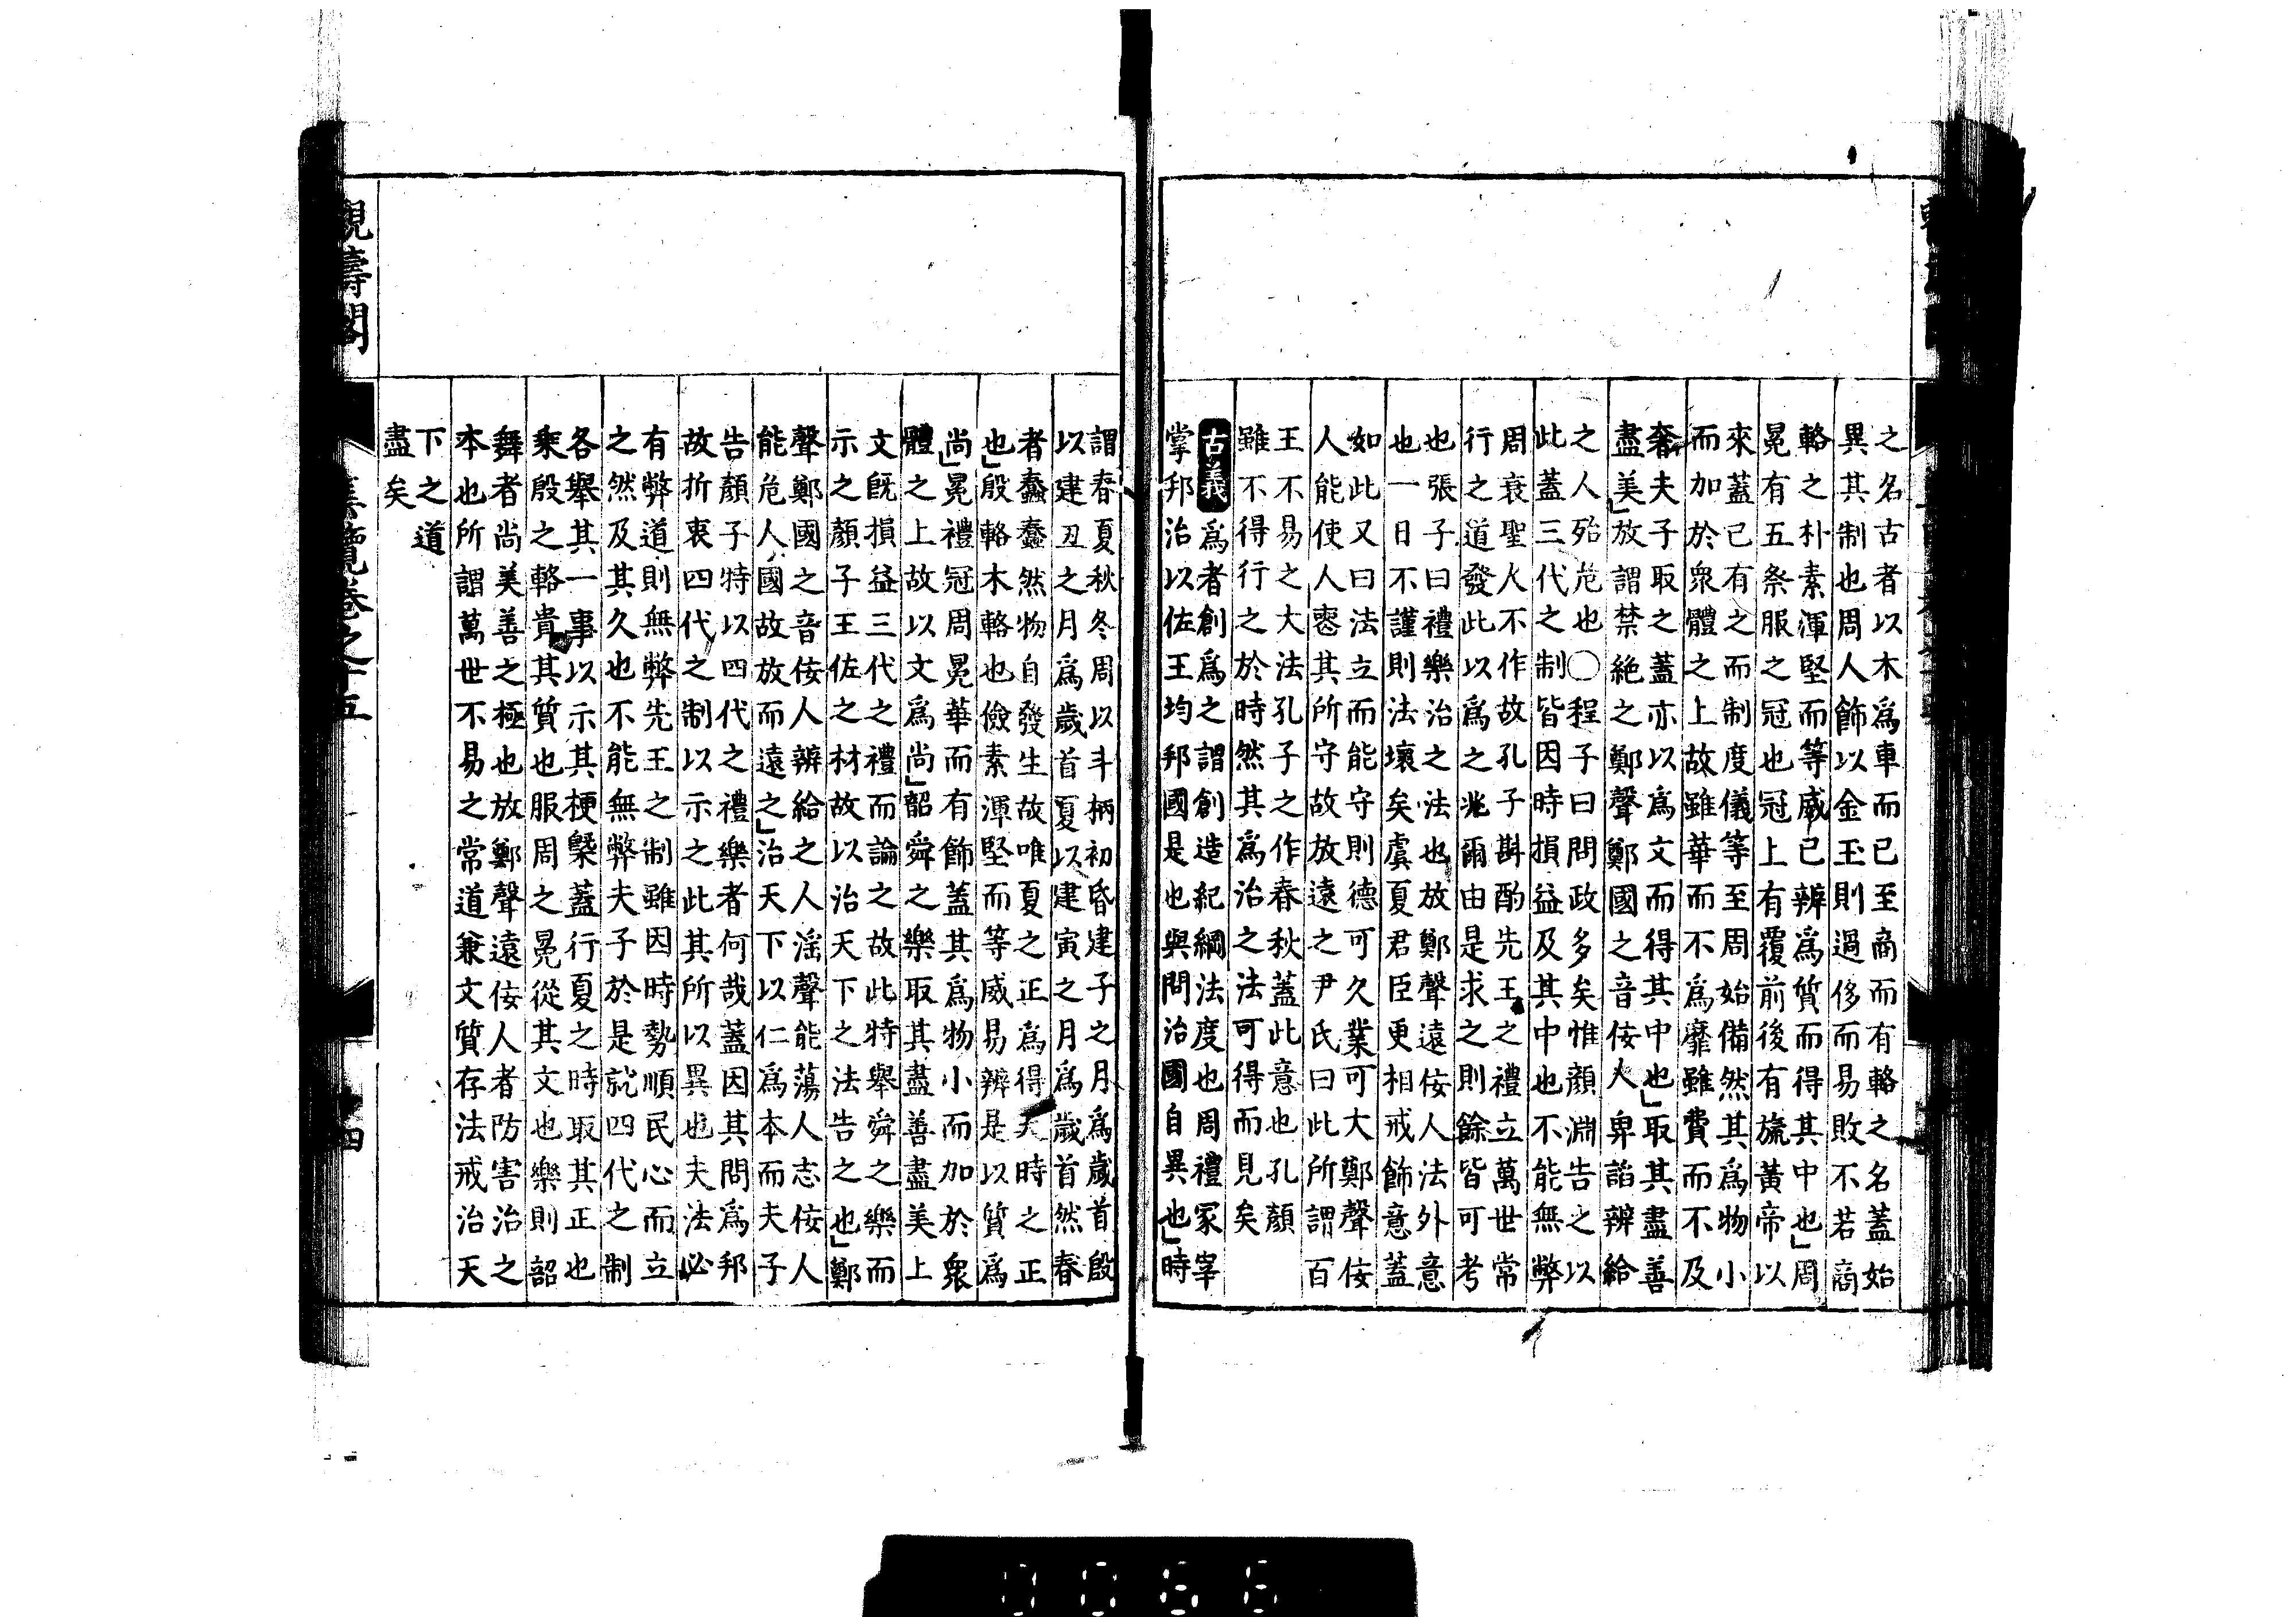 之名古者以木爲車而已至商而有輅之名蓋始
異其制也周人飾以金玉則過侈而易敗不若商
輅之朴素渾堅而等威已辨爲質而得其中也」周
冕有五祭服之冠也冠上有覆前後有旒黃帝以
來蓋已有之而制度儀等至周始備然其爲物小
而加於衆體之上故雖華而不爲靡雖費而不及
奢夫子取之蓋亦以爲文而得其中也」取其盡善
盡美」放謂禁絕之鄭聲鄭國之音佞人卑諂辨給
之人殆危也○程子曰問政多矣惟顏淵告之以
此蓋三代之制皆因時損益及其中也不能無弊
周衰聖人不作故孔子斟酌先王之禮立萬世常
行之道發此以爲之兆爾由是求之則餘皆可考
也張子曰禮樂治之法也放鄭聲遠佞人法外意
也一日不謹則法壞矣虞夏君臣更相戒飭意蓋
如此又曰法立而能守則德可久業可大鄭聲佞
人能使人喪其所守故放遠之尹氏曰此所謂百
王不易之大法孔子之作春秋蓋此意也孔顏
雖不得行之於時然其爲治之法可得而見矣
古義爲者創爲之謂創造紀綱法度也周禮冢宰
掌邦治以佐王均邦國是也與問治國自異也」時
謂春夏秋冬周以斗柄初昏建子之月爲歲首殷
以建丑之月爲歲首夏以建寅之月爲歲首然春
者蠢蠢然物自發生故唯夏之正爲得天時之正
也」殷輅木輅也儉素渾堅而等威易辨是以質爲
尚」冕禮冠周冕華而有飾蓋其爲物小而加於衆
體之上故以文爲尚」韶舜之樂取其盡善盡美上
文既損益三代之禮而論之故此特舉舜之樂而
示之顏子王佐之材故以治天下之法告之也」鄭
聲鄭國之音佞人辨給之人滛聲能蕩人志佞人
能危人國故放而遠之」治天下以仁爲本而夫子
告顏子特以四代之禮樂者何哉蓋因其問爲邦
故折衷四代之制以示之此其所以異也夫法必
有弊道則無弊先王之制雖因時勢順民心而立
之然及其久也不能無弊夫子於是就四代之制
各舉其一事以示其梗槩蓋行夏之時取其正也
乘殷之輅貴其質也服周之冕從其文也樂則韶
舞者尚美善之極也放鄭聲遠佞人者防害治之
本也所謂萬世不易之常道兼文質存法戒治天
下之道
盡矣
觀濤閣
集覽卷之十五
十四